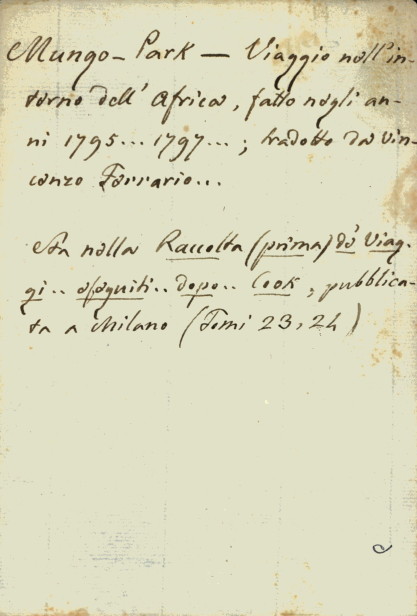 Mungo-Park — Viaggio nell'in-
terno dell' Africa, fatto negli an-
ni 1795... 1797...; tradotto da Vin-
cenzo Ferrario...
Sta nella Raccolta (prima) de' Viag-
gi.. eseguiti.. dopo.. Cook, pubblica-
ta a Milano (Tomi 23, 24)